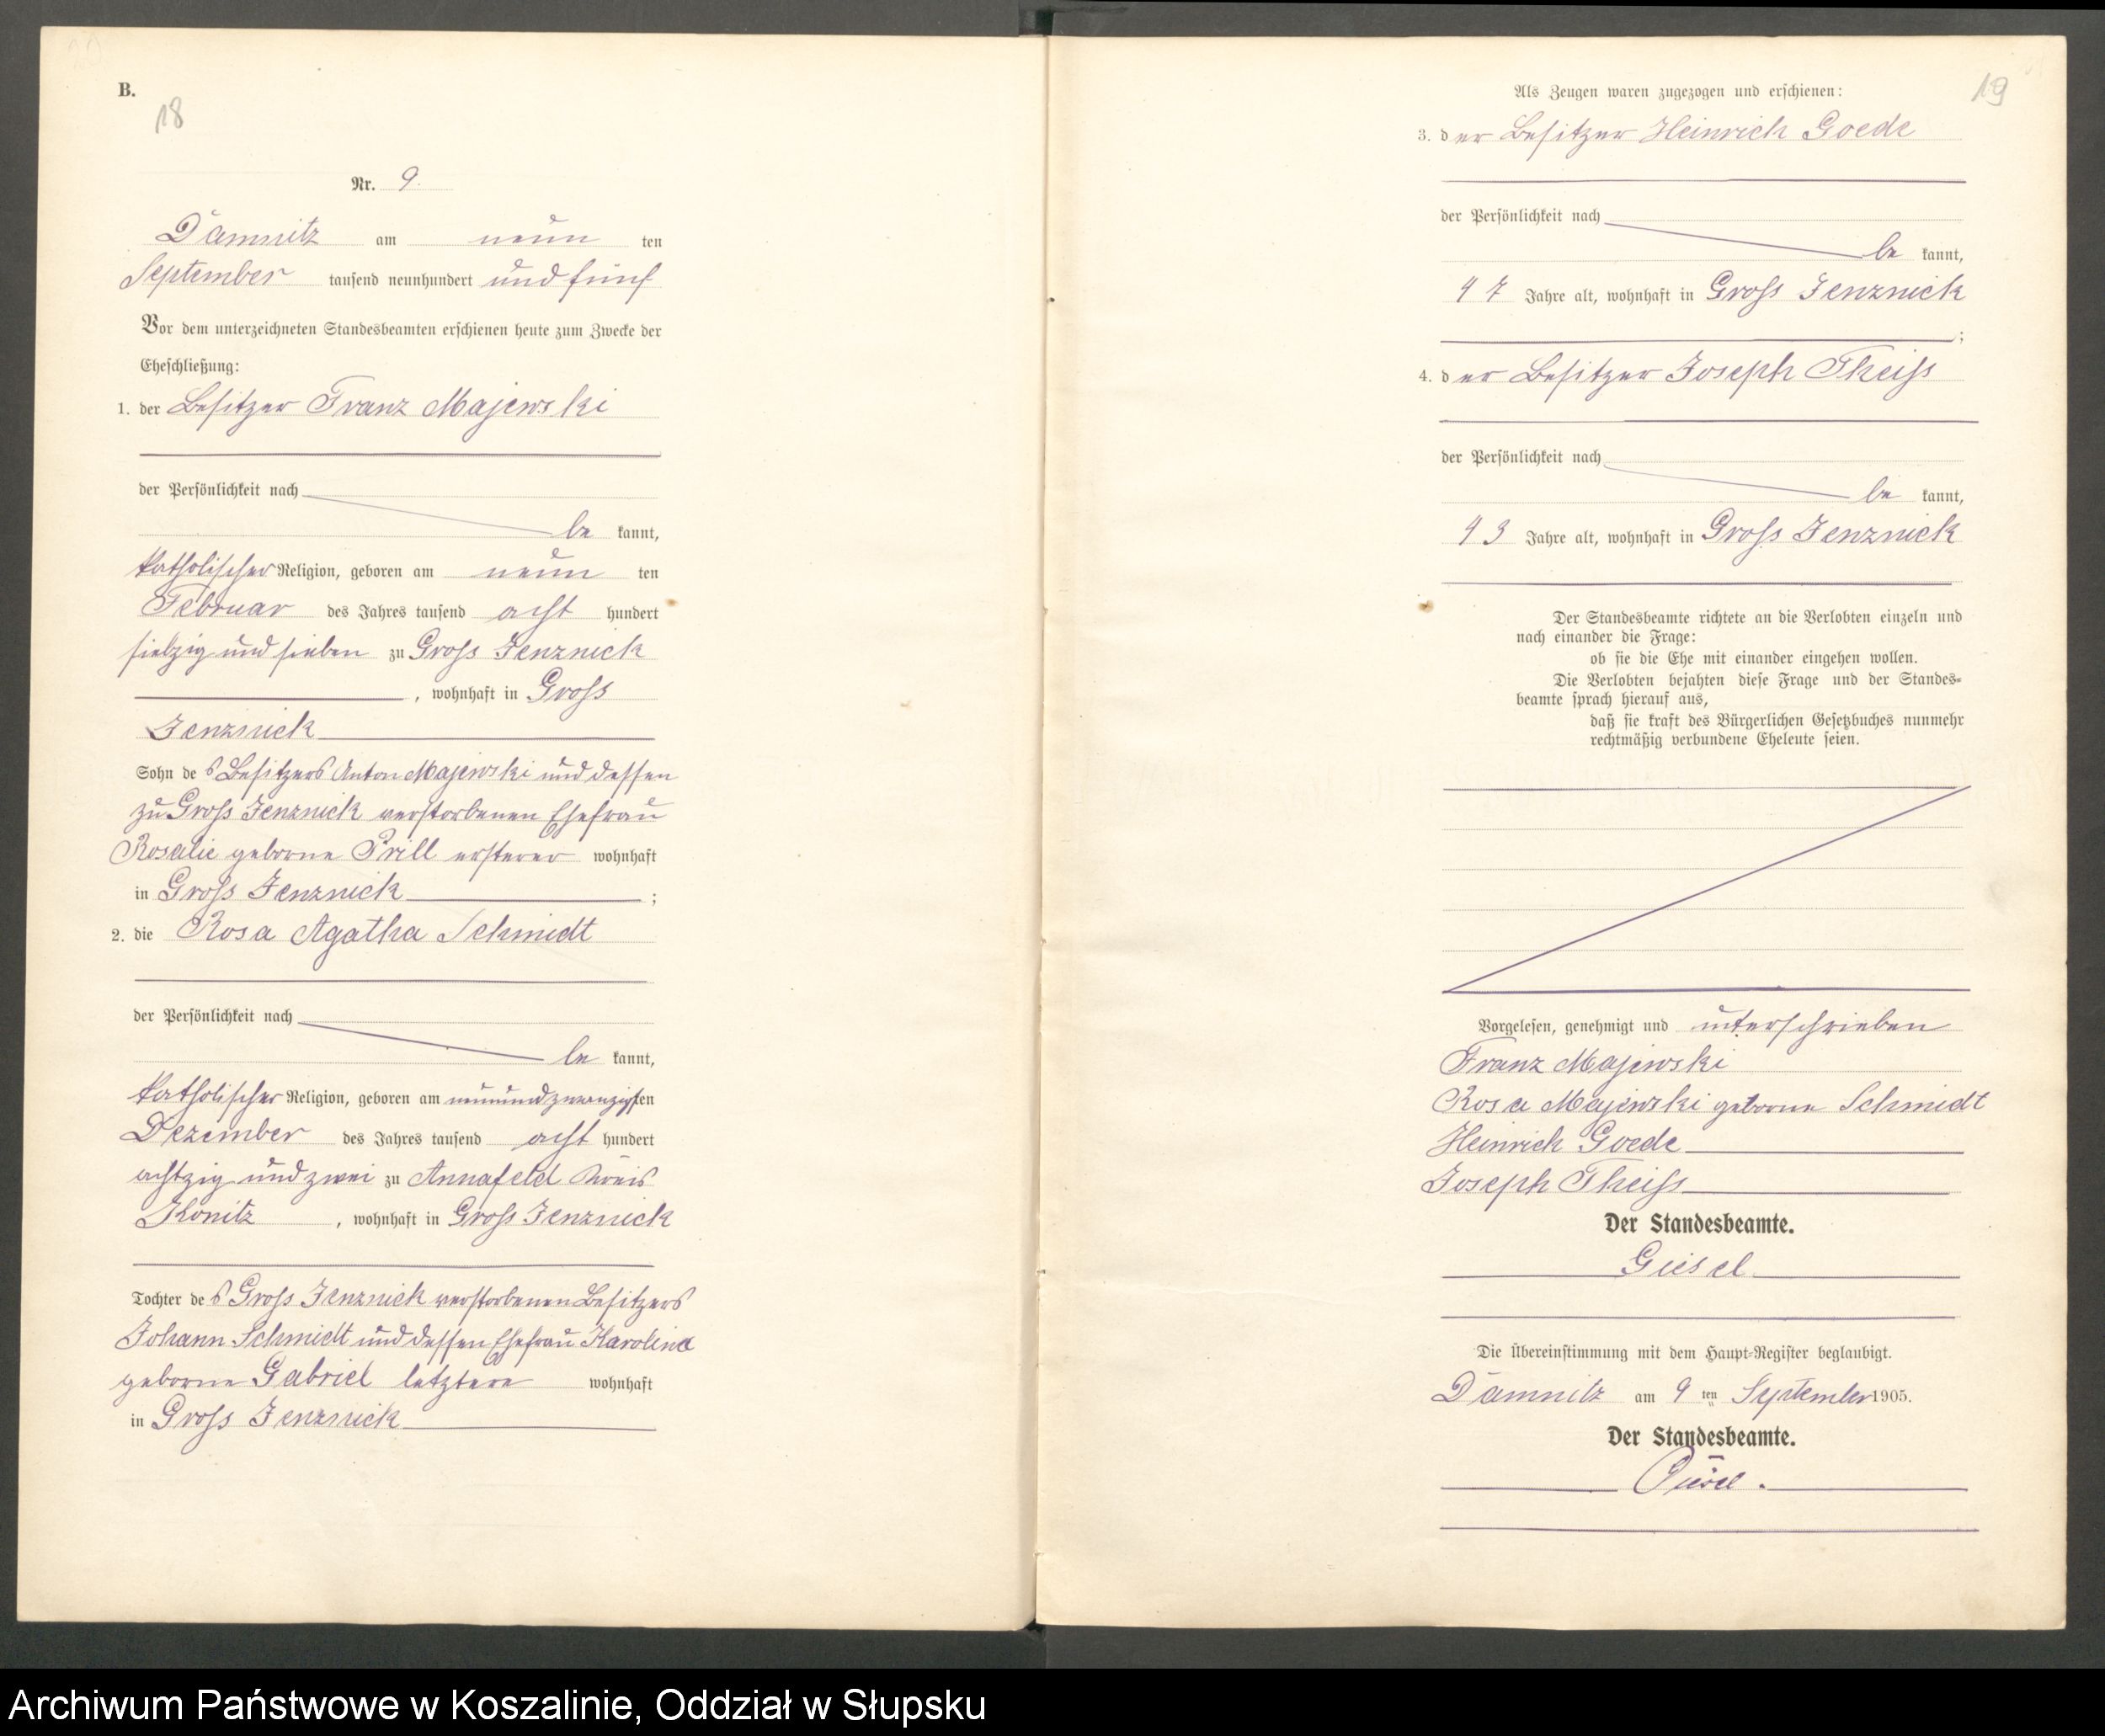 B.
18
Nr. 9.
Damnitz am neun ten
September tausend neunhundert und fünf
Vor dem unterzeichneten Standesbeamten erschienen heute zum Zwecke der
Eheschließung:
1. der Besitzer Franz Majewski
der Persönlichkeit nach
be kannt,
katholischer Religion, geboren am neun ten
Februar des Jahres tausend acht hundert
siebzig und sieben zu Gross Jenznick
, wohnhaft in Gross
Jenznick
Sohn des Besitzers Anton Majewski und dessen
zu Gross Jenznick verstorbenen Ehefrau
Rosalie geborne Prill ersterer wohnhaft
in Gross Jenznick ;
2. die Rosa Agatha Schmidt
der Persönlichkeit nach
be kannt,
katholischer Religion, geboren am neunundzwanzigsten
Dezember des Jahres tausend acht hundert
achtzig und zwei zu Annafeld Kreis
Konitz , wohnhaft in Gross Jenznick
Tochter des Gross Jenznick verstorbenen Besitzers
Johann Schmidt und dessen Ehefrau Karoline
geborne Gabriel letztere wohnhaft
in Gross Jenznick
19
Als Zeugen waren zugezogen und erschienen:
3. der Besitzer Heinrich Goede
der Persönlichkeit nach
be kannt,
47 Jahre alt, wohnhaft in Gross Jenznick
;
4. der Besitzer Joseph Theiss
der Persönlichkeit nach
be kannt,
43 Jahre alt, wohnhaft in Gross Jenznick
Der Standesbeamte richtete an die Verlobten einzeln und
nach einander die Frage:
ob sie die Ehe mit einander eingehen wollen.
Die Verlobten bejahten diese Frage und der Standes-
beamte sprach hierauf aus,
daß sie kraft des Bürgerlichen Gesetzbuches nunmehr
rechtmäßig verbundene Eheleute seien.
Vorgelesen, genehmigt und unterschrieben
Franz Majewski
Rosa Majewski geborne Schmidt
Heinrich Goede
Joseph Theiss
Der Standesbeamte.
Giesel
Die Übereinstimmung mit dem Haupt-Register beglaubigt.
Damnitz am 9 ten September 1905.
Der Standesbeamte.
Giesel.
Archiwum Państwowe w Koszalinie, Oddział w Słupsku